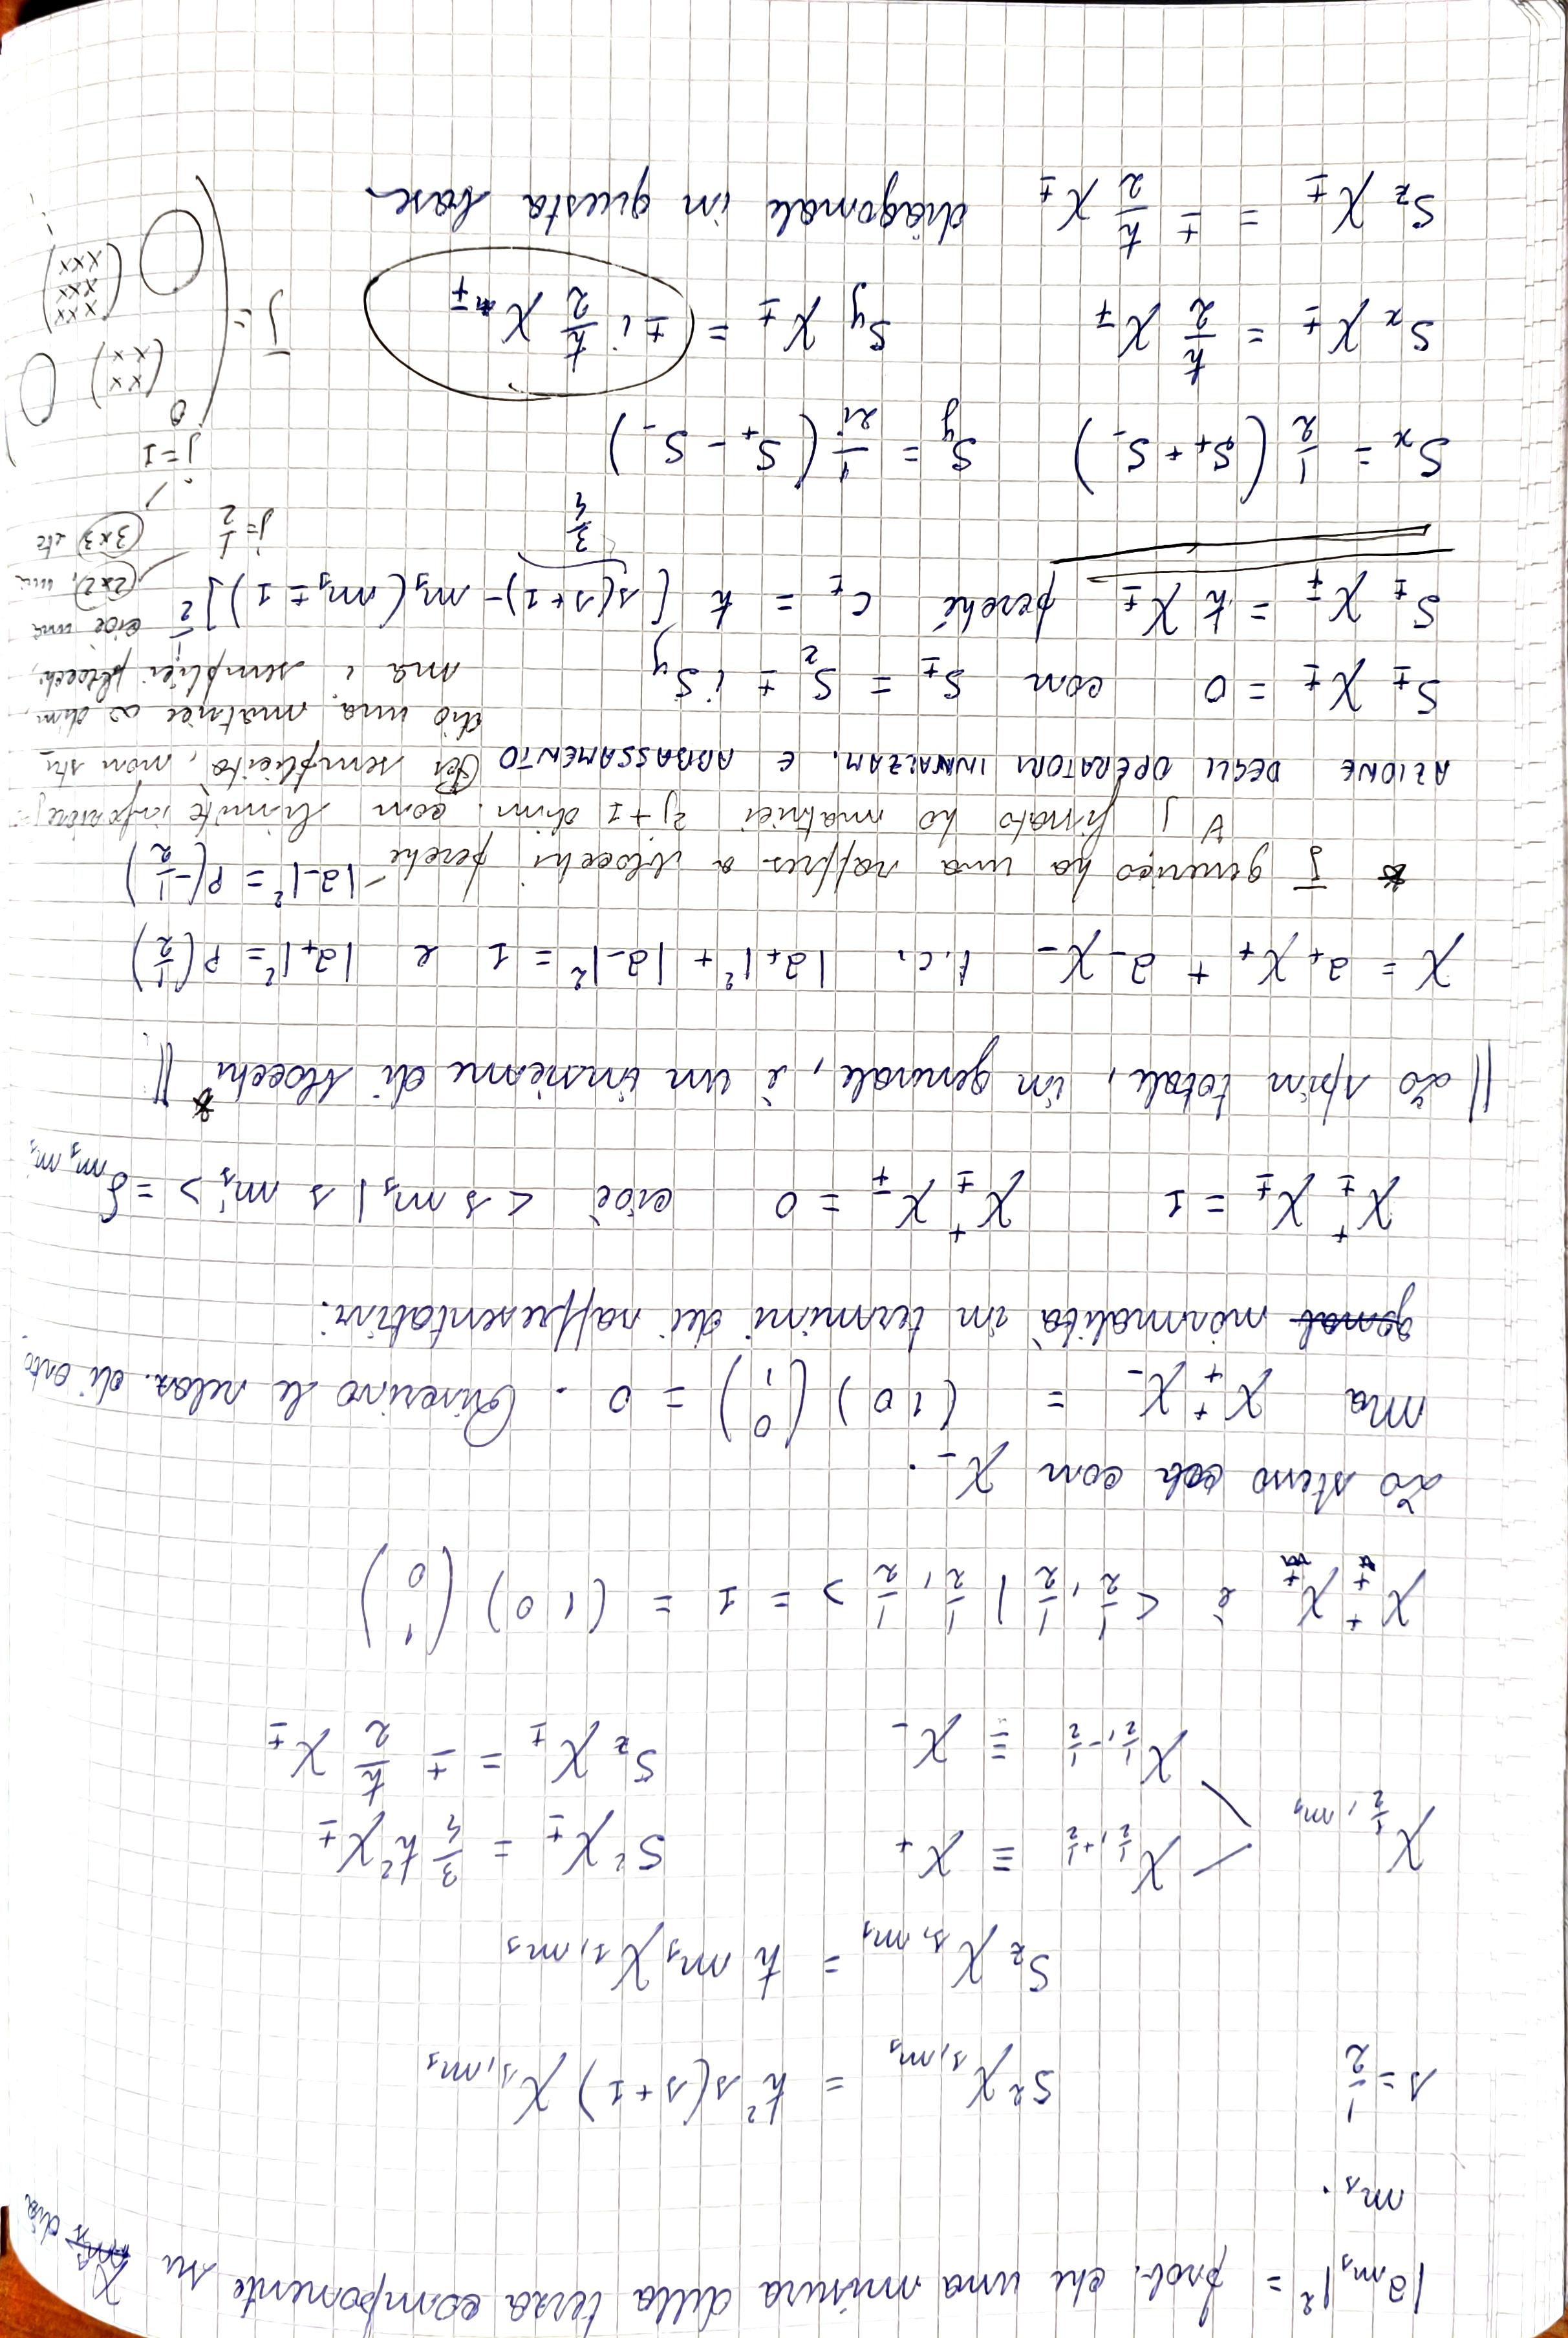 |a_{m_s}|² = prob. che una misura della terza componente su χ dia
m_s.
s = 1/2    S² χ_{s,m_s} = ħ² s(s+1) χ_{s,m_s}
S_z χ_{s,m_s} = ħ m_s χ_{s,m_s}
χ_{1/2,m_s}    χ_{1/2,+1/2} ≡ χ_+    S² χ_± = 3/4 ħ² χ_±
χ_{1/2,-1/2} ≡ χ_-    S_z χ_± = ± ħ/2 χ_±
χ_+^+ χ_+ è < 1/2, 1/2 | 1/2, 1/2 > = 1 = (1 0) (1 0)
Lo stesso con χ_-.
Ma χ_+^+ χ_- = (1 0) (0 1) = 0 . Riscrivo le relaz. di orto
normalità in termini dei rappresentativi:
χ_±^+ χ_± = 1    χ_±^+ χ_∓ = 0    cioè < s m_s | s m_s' > = δ_{m_s m_s'}
|| Lo spin totale, in generale, è un insieme di blocchi* ||
χ = a_+ χ_+ + a_- χ_-  t.c.  |a_+|² + |a_-|² = 1  e  |a_+|² = P(1/2)
|a_-|² = P(-1/2)
* J generico ha una rappres a blocchi perché
∀ j fissato ho matrici 2j+1 dim. con limite inferiore
Per semplicità, non stu_
dio una matrice ∞ dim,
ma i semplici blocchi,
cioè una
(2x2), una
(3x3) etc
j = 1/2
j = 1
AZIONE DEGLI OPERATORI INNALZAM. E ABBASSAMENTO
S_± χ_± = 0    con  S_± = S_x ± i S_y
S_± χ_∓ = ħ χ_±  perché  c_± = ħ [s(s+1) - m_s(m_s ± 1)]^{1/2}
3/4
S_x = 1/2 (S_+ + S_-)    S_y = 1/2i (S_+ - S_-)
S_x χ_± = ħ/2 χ_∓    S_y χ_± = ± i ħ/2 χ_∓
J = ( 0
(x x
x x) 0
0 (x x x
x x x
x x x)
S_z χ_± = ± ħ/2 χ_±  diagonale in questa base